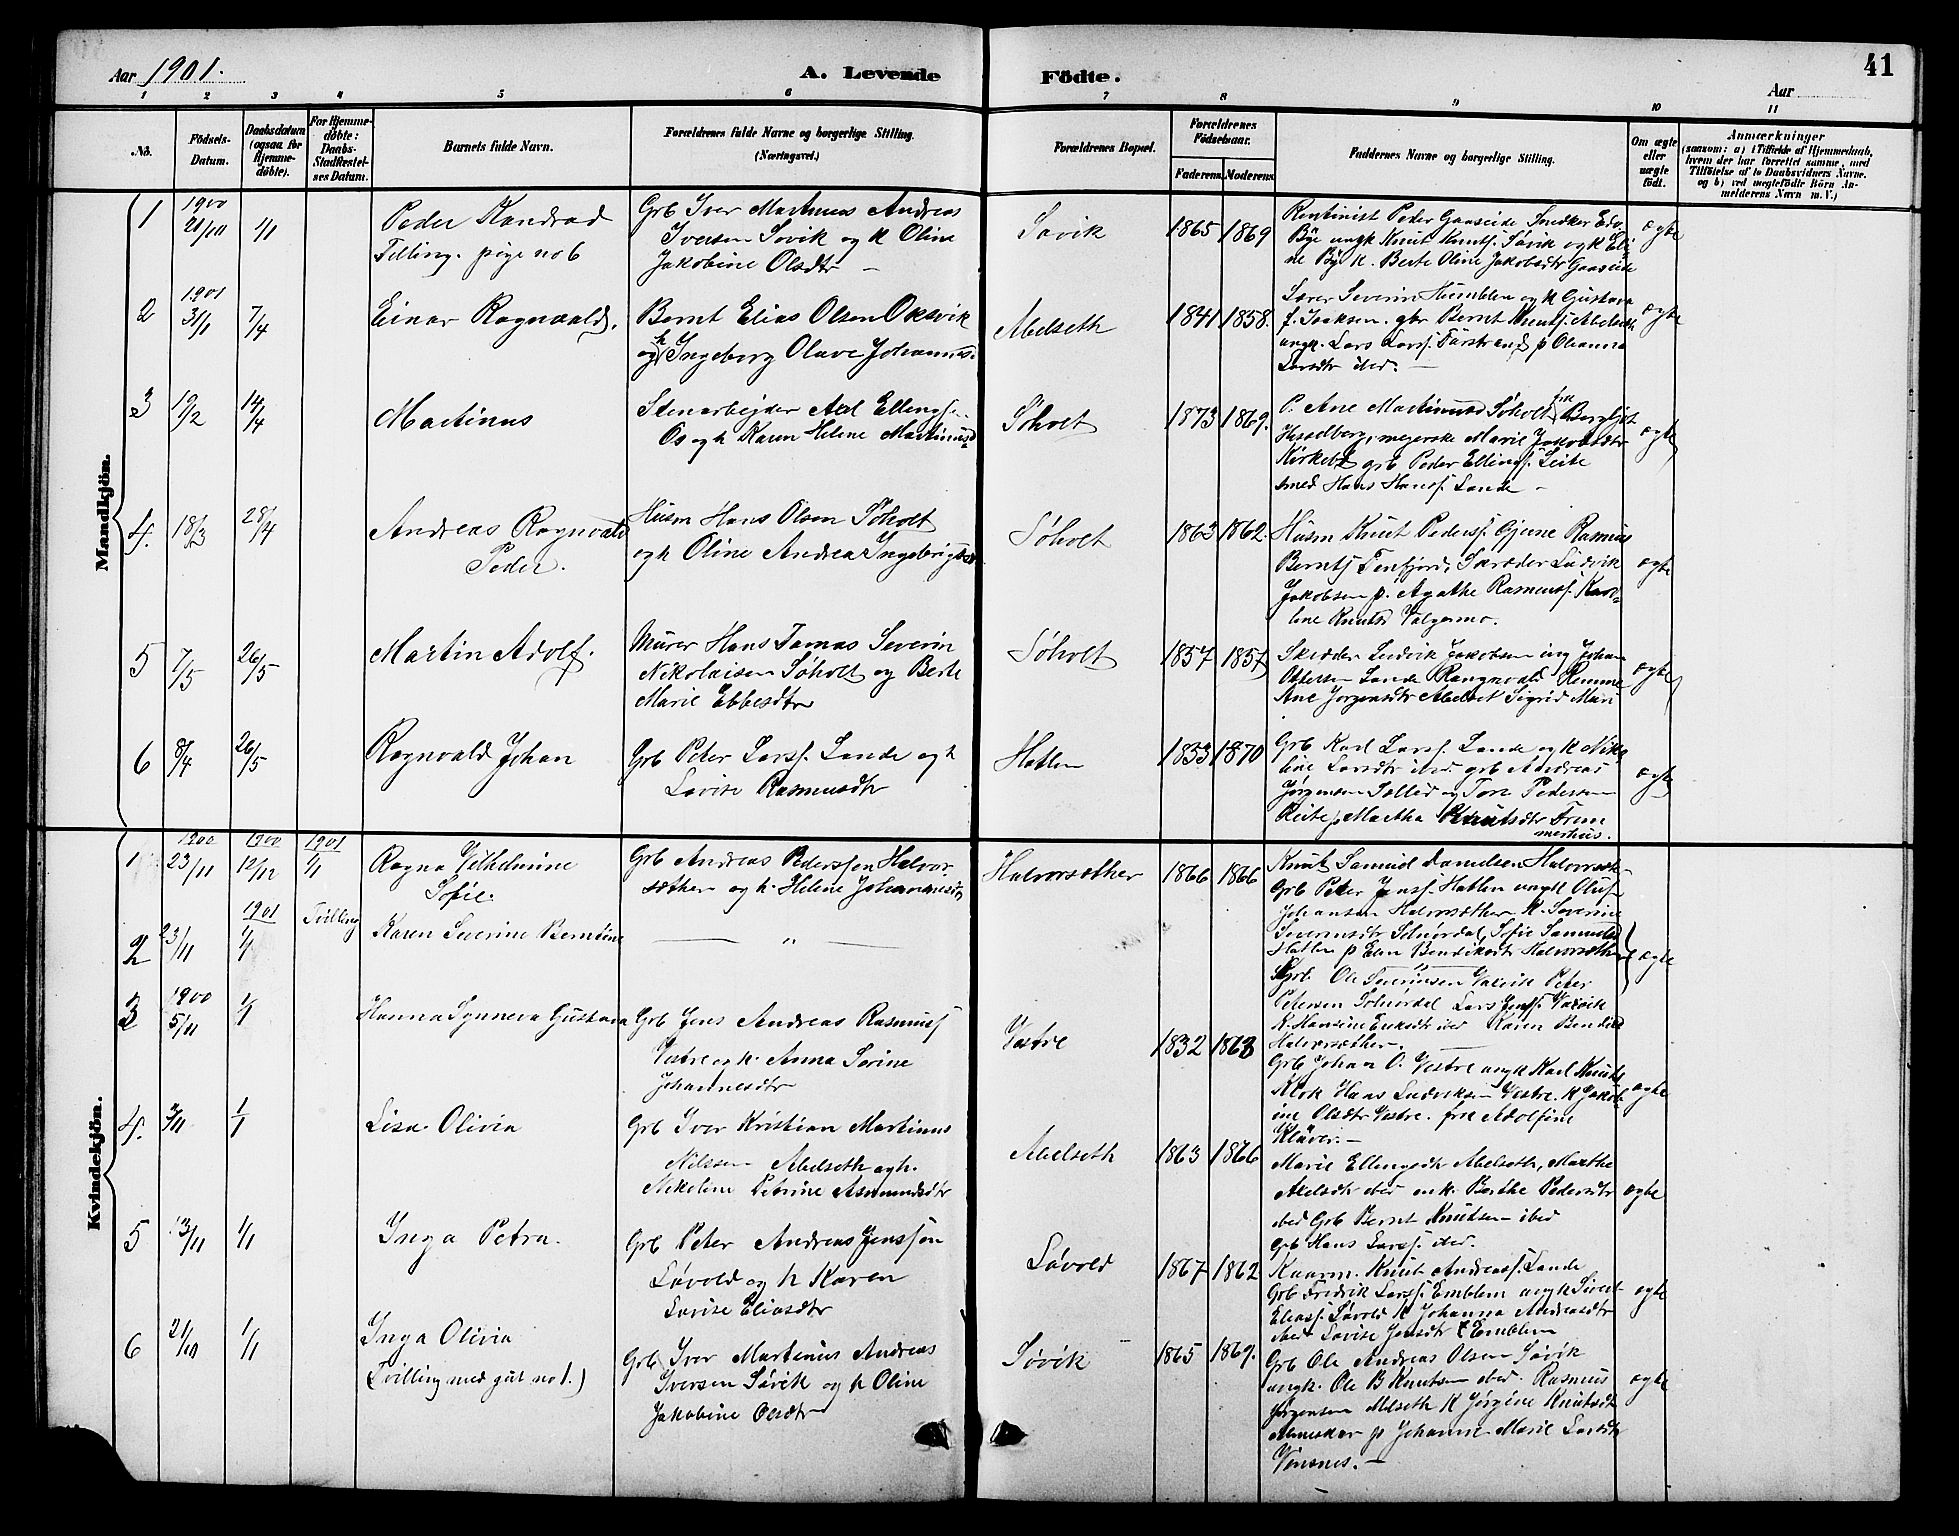 41
Aar 1901.
A. Levende Födte.
Aar
1 2 3 4 5 6 7 8 9 10 11
No.
Födsels-Datum.
Daabsdatum (ogsaa for Hjemme-döbte).
For Hjemme-döbte: Daabs-Stadfæstel-ses Datum.
Barnets fulde Navn.
Forældrenes fulde Navne og borgerlige Stilling. (Næringsvei.)
Forældrenes Bopæl.
Forældrenes Födselsaar.
Faderens. Moderens.
Faddernes Navne og borgerlige Stilling.
Om ægte eller uægte födt.
Anmærkninger
(saasom: a) i Tilfælde af Hjemmedaab,
hvem der har forrettet samme, med
Tilföielse af to Daabsvidners Navne,
og b) ved uægtefödte Börn An-
melderens Navn m. V.)
Mandkjön.
1
1900
21/10 1/1
Peder Kondrad
Tilling. pige no 6
Grb Iver Martinus Andreas
Iversen Søvik og h Oline
Jakobine Olsdtr —
Søvik
1865 1869
Rentinist Peder Gaaseide Snedker Edv.
Bye ungk Knut Knuts. Søvik og k Eli-
ne Bye k. Berte Oline Jakobsdtr Gaaseide
ægte
2
1901
3/1 7/4
Einar Ragnvald.
Bernt Elias Olsen Oksvik
og h Ingeborg Olave Johannes.
Abelseth
1841 1858.
Lærer Severin Humblen og k Gustava
f. Isaksen. gbr Bernt Knuts. Abelseth
ungk. Lars Larss. p Olianna
Larsdtr ibid. —
ægte
3
19/2 14/4
Martinus
Stenarbejder Axel Ellings.
Os og h Karen Helene Martinusd
Søholt
1873 1869.
P. Ane Martinusd Søholt frk Bergljot
Hesselberg, mejerske Marie Jakobsdtr
grb Peder Ellings. Leite
smed Hans Hanss. Lande —
ægte
4.
18/3 28/4
Andreas Ragnvald
Peder.
Husm Hans Olsen Søholt
og h Oline Andrea Ingebrigtsd
Søholt
1863 1862.
Husm Knut Peders. Gjerre Rasmus
Bernts Tenfjord, Skræder Ludvik
Jakobsen p. Agathe Rasmuss. Karo-
line Knutsd Valgermo.
ægte
5
7/5 26/5
Martin Adolf.
Murer Hans Tomas Severin
Nikolaisen Søholt og Berte
Marie Ebbesdtr
Søholt
1857 1857
Skræder Ludvik Jakobsen ug Johan
Ottersen Lande Rangnvald Remme
Ane Jørgensdtr Abelset Sigrid Mari
ægte
6
8/4 26/5
Ragnvald Johan
Grb Peter Larss. Lande og h
Lovise Rasmusdtr
Hatlen
1833 1870
Grb Karl Larss. Lande og k Niko
line Larsdtr ibid. grb Andreas
Jørgensen Sollid og Tore Pedersen
Reite p Martha Knutsdtr Frem
merhus.
ægte
Kvindekjön.
1
1900
23/11
1900
12/12
1901
1/1
Ragna Vilhelmine
Sofie.
Grb Andreas Pederssen Halvor
sæther og h. Helene Johannesdtr
Halvorsæther
1866 1866
Knut Samuel Danielsen Halvorsæth
Grb Peter Jenss. Hatlen ungk Oluf
Johansen Halvorsæther k. Severine
Severinsdtr Solnørdal, Sofie Samuelsd
Hatlen p Elen Bendiksdtr Halvorsæther
2
23/11
1901
1/1
Tvilling
Karen Severine Berntine
— „ —
ægte
— „ —
Grb. Ole Severinsen Vatvik Peter
Petersen Solnørdal Lars Jenss. Vatvik
k. Hansine Eriksdtr ibid Karen Bendiksd
Halvorsæther. —
3
1900
5/11 1/1
Hanna Synneva Gustava
Grb Jens Andreas Rasmuss
Vestre og k. Anna Serine
Johannesdtr
Vestre
1832 1863
Grb Johan O. Vestre ungk Karl Knuts.
Klok Hans Ludviksen Vestre. k Jakob
ine Olsdtr Vestre. frk Adolfine
Kløver. —
ægte
4.
3/11 1/1
Lisa Olivia
Grb Iver Kristian Martinus
Nilssen Abelseth og h.
Nikoline Petrine Asmundsdtr
Abelseth
1863 1866
Marie Ellingsdtr Abelseth, Marthe
Akelsdtr ibid enk. Berthe Pedersdtr
ibid Grb Bernt Knutsen ibid
Grb Hans Larss. ibid.
ægte
5
13/11 1/1
Inga Petra.
Grb Peter Andreas Jenssen
Løvold og h Karen
Lovise Eliasdtr
Løvold
1867 1862
Kaarm. Knut Andreass. Lande
Grb Fredrik Larss. Emblem ungk Sivert
Eliass. Løvold k Johanna Andreasdtr
ibid Lovise Jensdtr Emblem
ægte
6
21/10 1/1
Inga Olivia
(Tvilling med gut no 1.)
Grb Iver Martinus Andreas
Iversen Søvik og h Oline
Jakobine Olsdtr
Søvik
1865 1869.
Grb Ole Andreas Olsen Søvik
ungk. Ole B Knutsen ibid. Rasmus
Jørgensen Melseth k Jørgine Knutsdtr
p Johanne Marie Larsdtr
Vennes. —
ægte